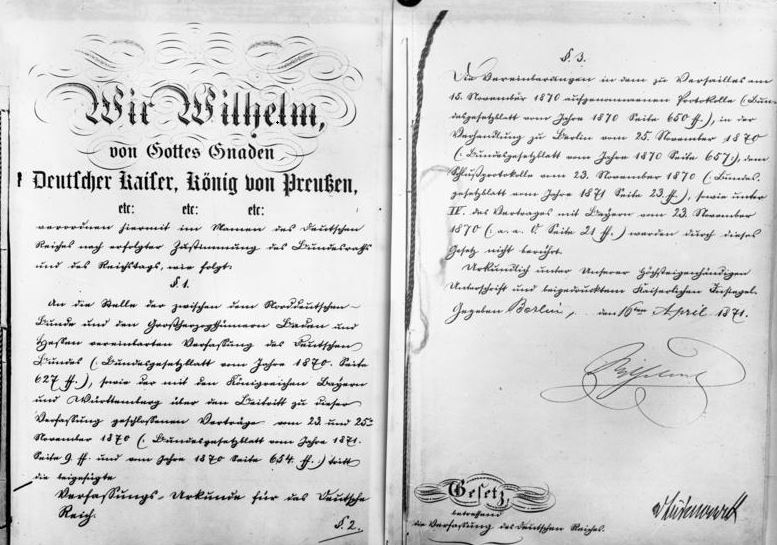 Wir Wilhelm,
von Gottes Gnaden
Deutscher Kaiser, König von Preußen,
etc: etc: etc:
verordnen hiermit im Namen des Deutschen
Reiches nach erfolgter Zustimmung des Bundesraths
und des Reichstags, wie folgt:
§. 1.
An die Stelle der zwischen dem Norddeutschen
Bunde und den Großherzogthümern Baden und
Hessen vereinbarten Verfassung des Deutschen
Bundes (Bundesgesetzblatt vom Jahre 1870. Seite
627 ff.), sowie der mit den Königreichen Bayern
und Württemberg über den Beitritt zu dieser
Verfassung geschlossenen Verträge vom 23. und 25ten
November 1870 (Bundesgesetzblatt vom Jahre 1871.
Seite 9. ff. und vom Jahre 1870 Seite 654. ff.) tritt
die beigefügte
Verfassungs-Urkunde für das Deutsche
Reich.
§. 2.
§. 3.
Die Vereinbarungen in dem zu Versailles am
15. November 1870 aufgenommenen Protokolle (Bun¬
desgesetzblatt vom Jahre 1870 Seite 650 ff.), in der
Verhandlung zu Berlin vom 25. November 1870
(Bundesgesetzblatt vom Jahre 1870 Seite 657), dem
Schlußprotokolle vom 23. November 1870 (Bundes-
gesetzblatt vom Jahre 1871 Seite 23 ff.), sowie unter
IV. des Vertrages mit Bayern vom 23. November
1870 (a. a. O. Seite 21 ff.) werden durch dieses
Gesetz nicht berührt.
Urkundlich unter Unserer Höchsteigenhändigen
Unterschrift und beigedrucktem Kaiserlichen Insiegel.
Gegeben Berlin, den 16ten April 1871.
Wilhelm
Gesetz,
betreffend
die Verfassung des Deutschen Reiches.